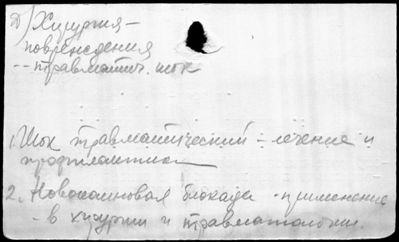 Д) Хирургия -
повреждения
-- травматич. шок
1. Шок травматический - лечение и
профилактика
2. Новокаиновая блокада - применение
- в хирургии и травматологии.